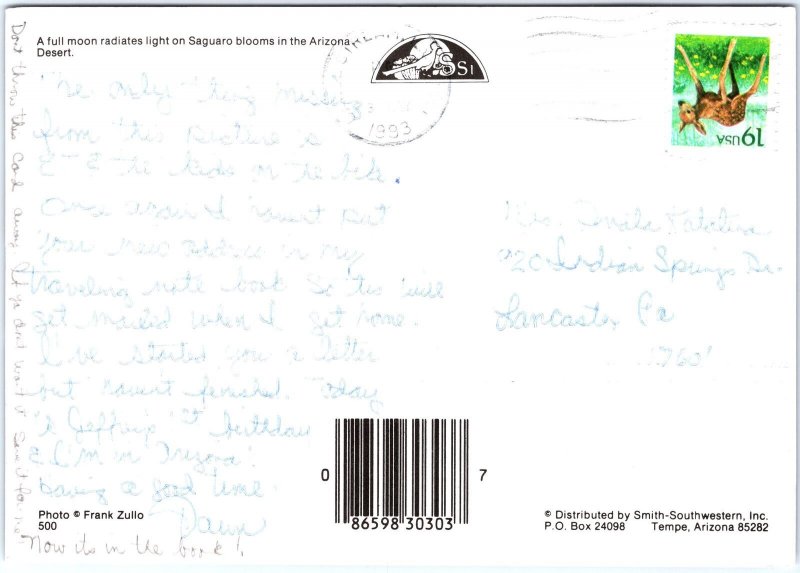 A full moon radiates light on Saguaro blooms in the Arizona
Desert.
SSI
1993
19 USA
only missing
from this picture is
& the kids on the bike.
Once again I havent put
your new address in my
traveling note book so this will
get mailed when I get home.
I've started you a letter
but havent finished. Today
is birthday
& I'm in Arizona!
having a good time.
Dawn
Indian Springs Dr.
Lancaster Pa
Dont throw this card away. If you dont want it save it for me
Now its in the book!
0 86598 30303 7
Photo © Frank Zullo
500
© Distributed by Smith-Southwestern, Inc.
P.O. Box 24098 Tempe, Arizona 85282